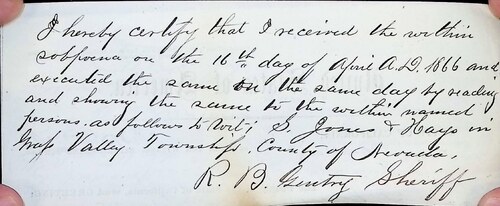 I hereby certify that I received the within
subpoena on the 16th day of April A.D. 1866 and
executed the same on the same day by reading
and showing the same to the within named
persons. as follows to wit; S. Jones & Hays in
Grass Valley Township. County of Nevada.
R. B. Gentry Sheriff